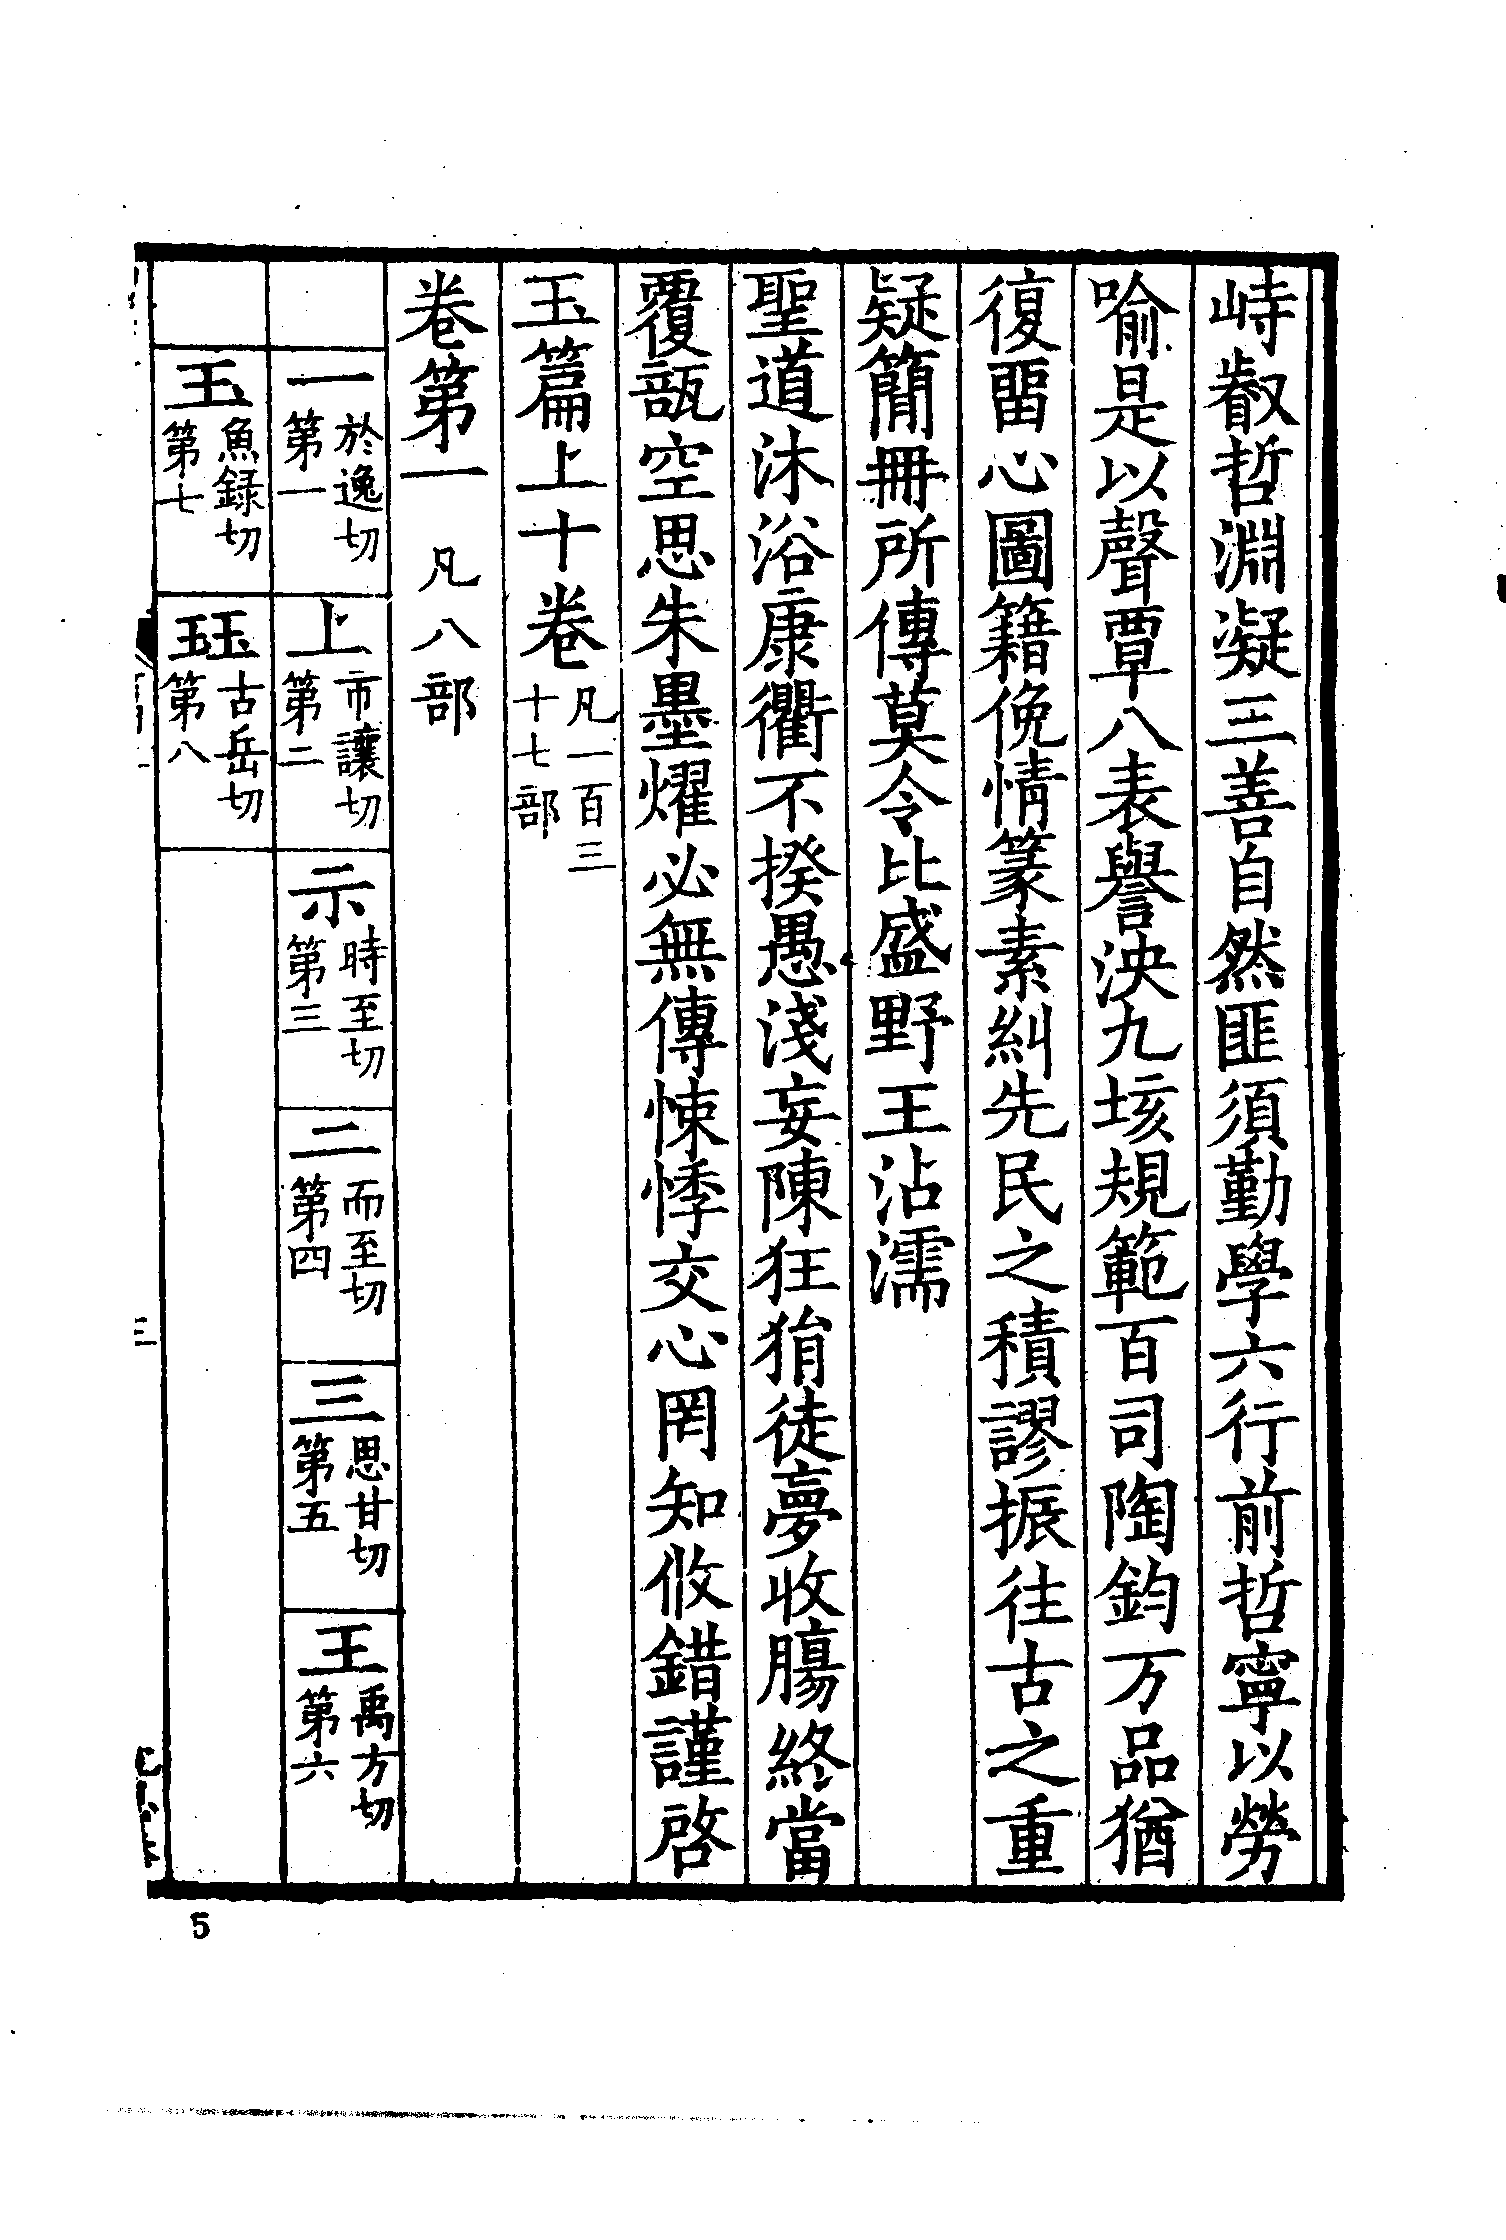 峙叡哲淵凝三善自然匪須勤學六行前哲寧以勞
喻是以聲覃八表譽泱九垓規範百司陶鈞万品猶
復畱心圖籍俛情篆素糾先民之積謬振往古之重
疑簡冊所傳莫令比盛野王沾濡
聖道沐浴康衢不揆愚淺妄陳狂狷徒夢收腸終當
覆瓿空思朱墨燿必無傳悚悸交心罔知攸錯謹啓
玉篇上十卷 凡一百三十七部
卷第一 凡八部
一 於逸切 第一 上 市讓切 第二 示 時至切 第三 二 而至切 第四 三 思甘切 第五 王 禹方切 第六
玉 魚録切 第七 玨 古岳切 第八
三
5